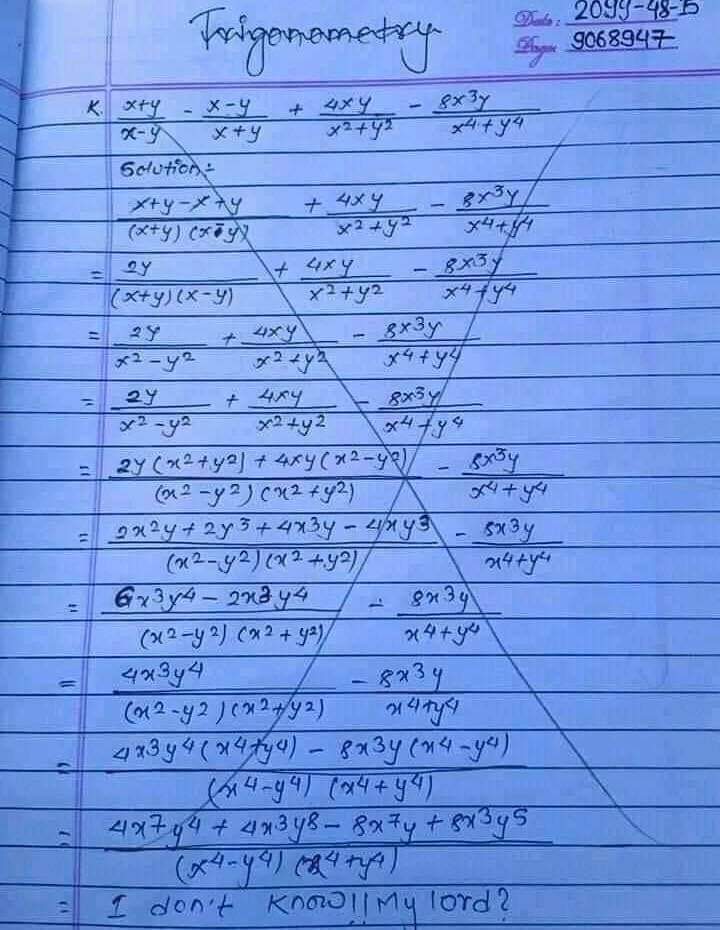 Trigonometry
Date: 2099-48-B
Page: 9068947
K. x+y/x-y - x-y/x+y + 4xy/x²+y² - 8x³y/x⁴+y⁴
Solution:
x+y-x+y/(x+y)(x-y) + 4xy/x²+y² - 8x³y/x⁴+y⁴
= 2y/(x+y)(x-y) + 4xy/x²+y² - 8x³y/x⁴+y⁴
= 2y/x²-y² + 4xy/x²+y² - 8x³y/x⁴+y⁴
= 2y/x²-y² + 4xy/x²+y² - 8x³y/x⁴+y⁴
= 2y(x²+y²)+4xy(x²-y²)/(x²-y²)(x²+y²) - 8x³y/x⁴+y⁴
= 2x²y+2y³+4x³y-4xy³/(x²-y²)(x²+y²) - 8x³y/x⁴+y⁴
= 6x³y⁴-2x³y⁴/(x²-y²)(x²+y²) - 8x³y/x⁴+y⁴
= 4x³y⁴/(x²-y²)(x²+y²) - 8x³y/x⁴+y⁴
= 4x³y⁴(x⁴+y⁴)-8x³y(x⁴-y⁴)/(x⁴-y⁴)(x⁴+y⁴)
= 4x⁷y⁴+4x³y⁸-8x⁷y+8x³y⁵/(x⁴-y⁴)(x⁴+y⁴)
= I don't know!! My lord?